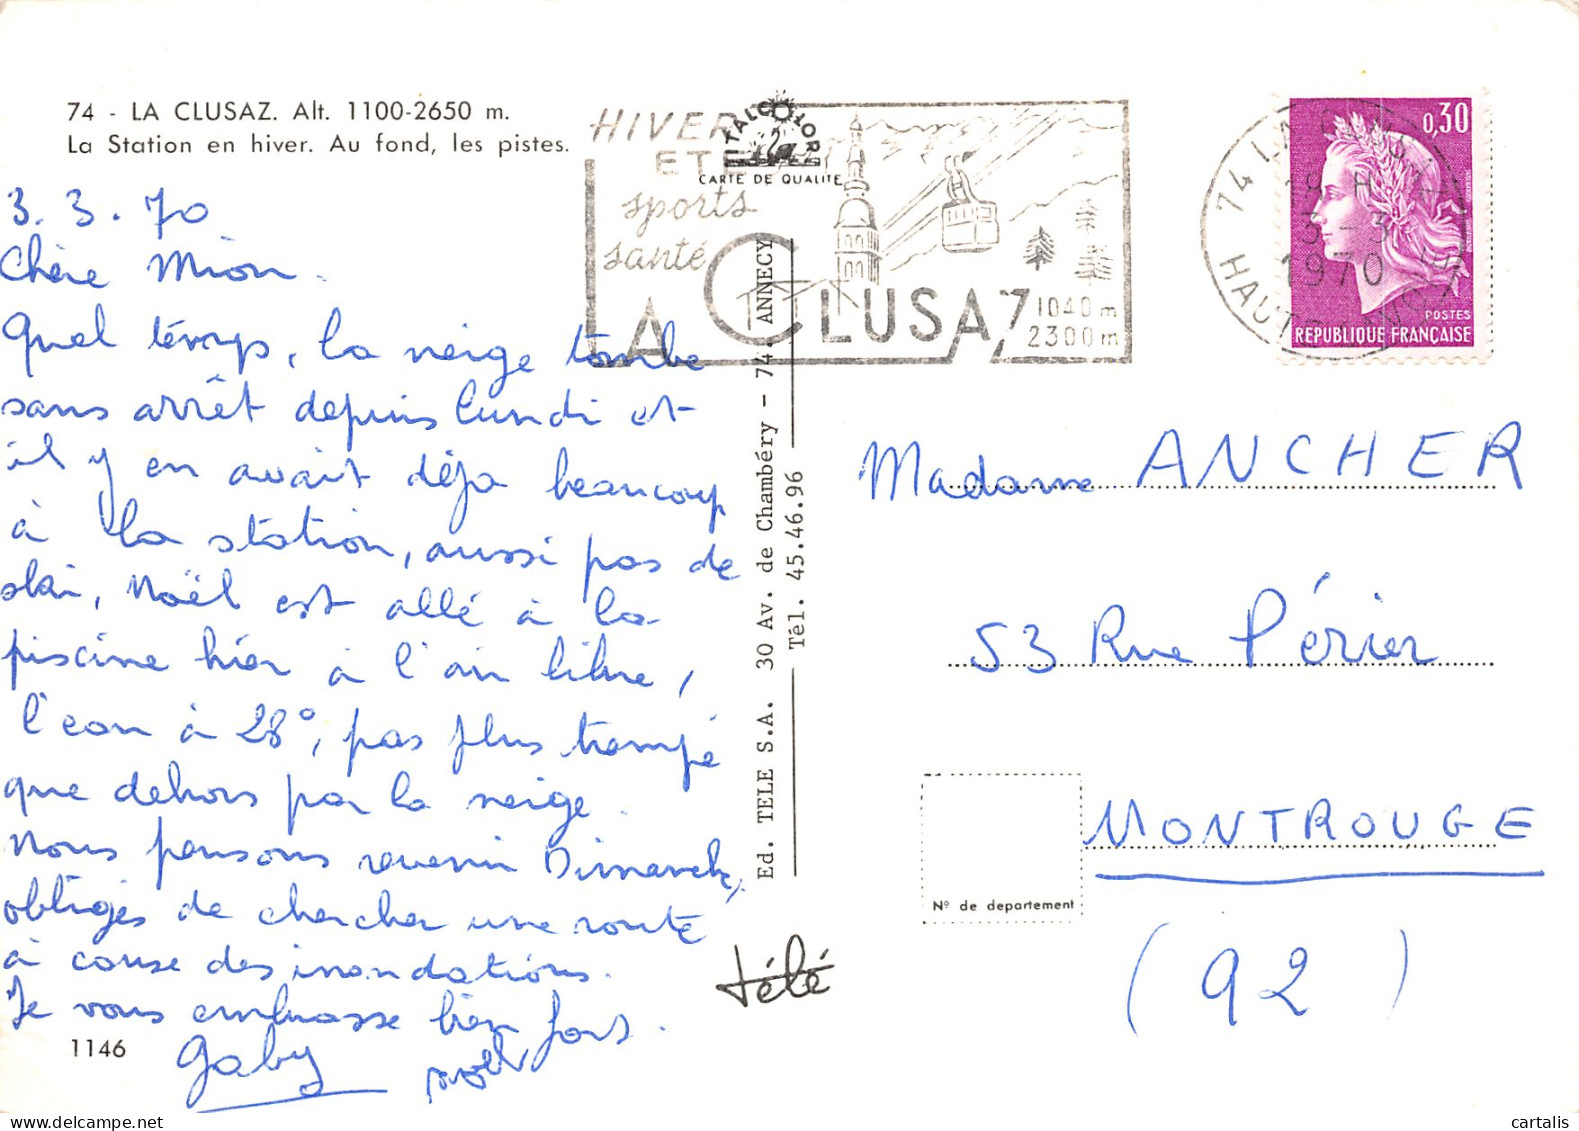 74 - LA CLUSAZ. Alt. 1100-2650 m.
La Station en hiver. Au fond, les pistes.
3. 3. 70
Chère Mion.
Quel temps, la neige tombe
sans arrêt depuis lundi et
il y en avait déjà beaucoup
à la station, aussi pas de
ski, Noël est allé à la
piscine hier à l'air libre,
l'eau à 28°, pas plus trempé
que dehors par la neige.
Nous pensons revenir Dimanche,
obligés de chercher une route
à cause des inondations.
Je vous embrasse bien fort.
Gaby Noël
1146
HIVER
ETE
sports
santé
LA CLUSAZ
1040 m
2300 m
ITALCOLOR
CARTE DE QUALITE
Ed. TELE S.A. 30 Av. de Chambéry - 74 - ANNECY
Tél. 45.46.96
télé
74 LA CLUSAZ
18 H
3 - 3
1970
HAUTE SAVOIE
0,30
POSTES
REPUBLIQUE FRANÇAISE
Madame ANCHER
53 Rue Périer
MONTROUGE
(92)
N° de departement
cartalis